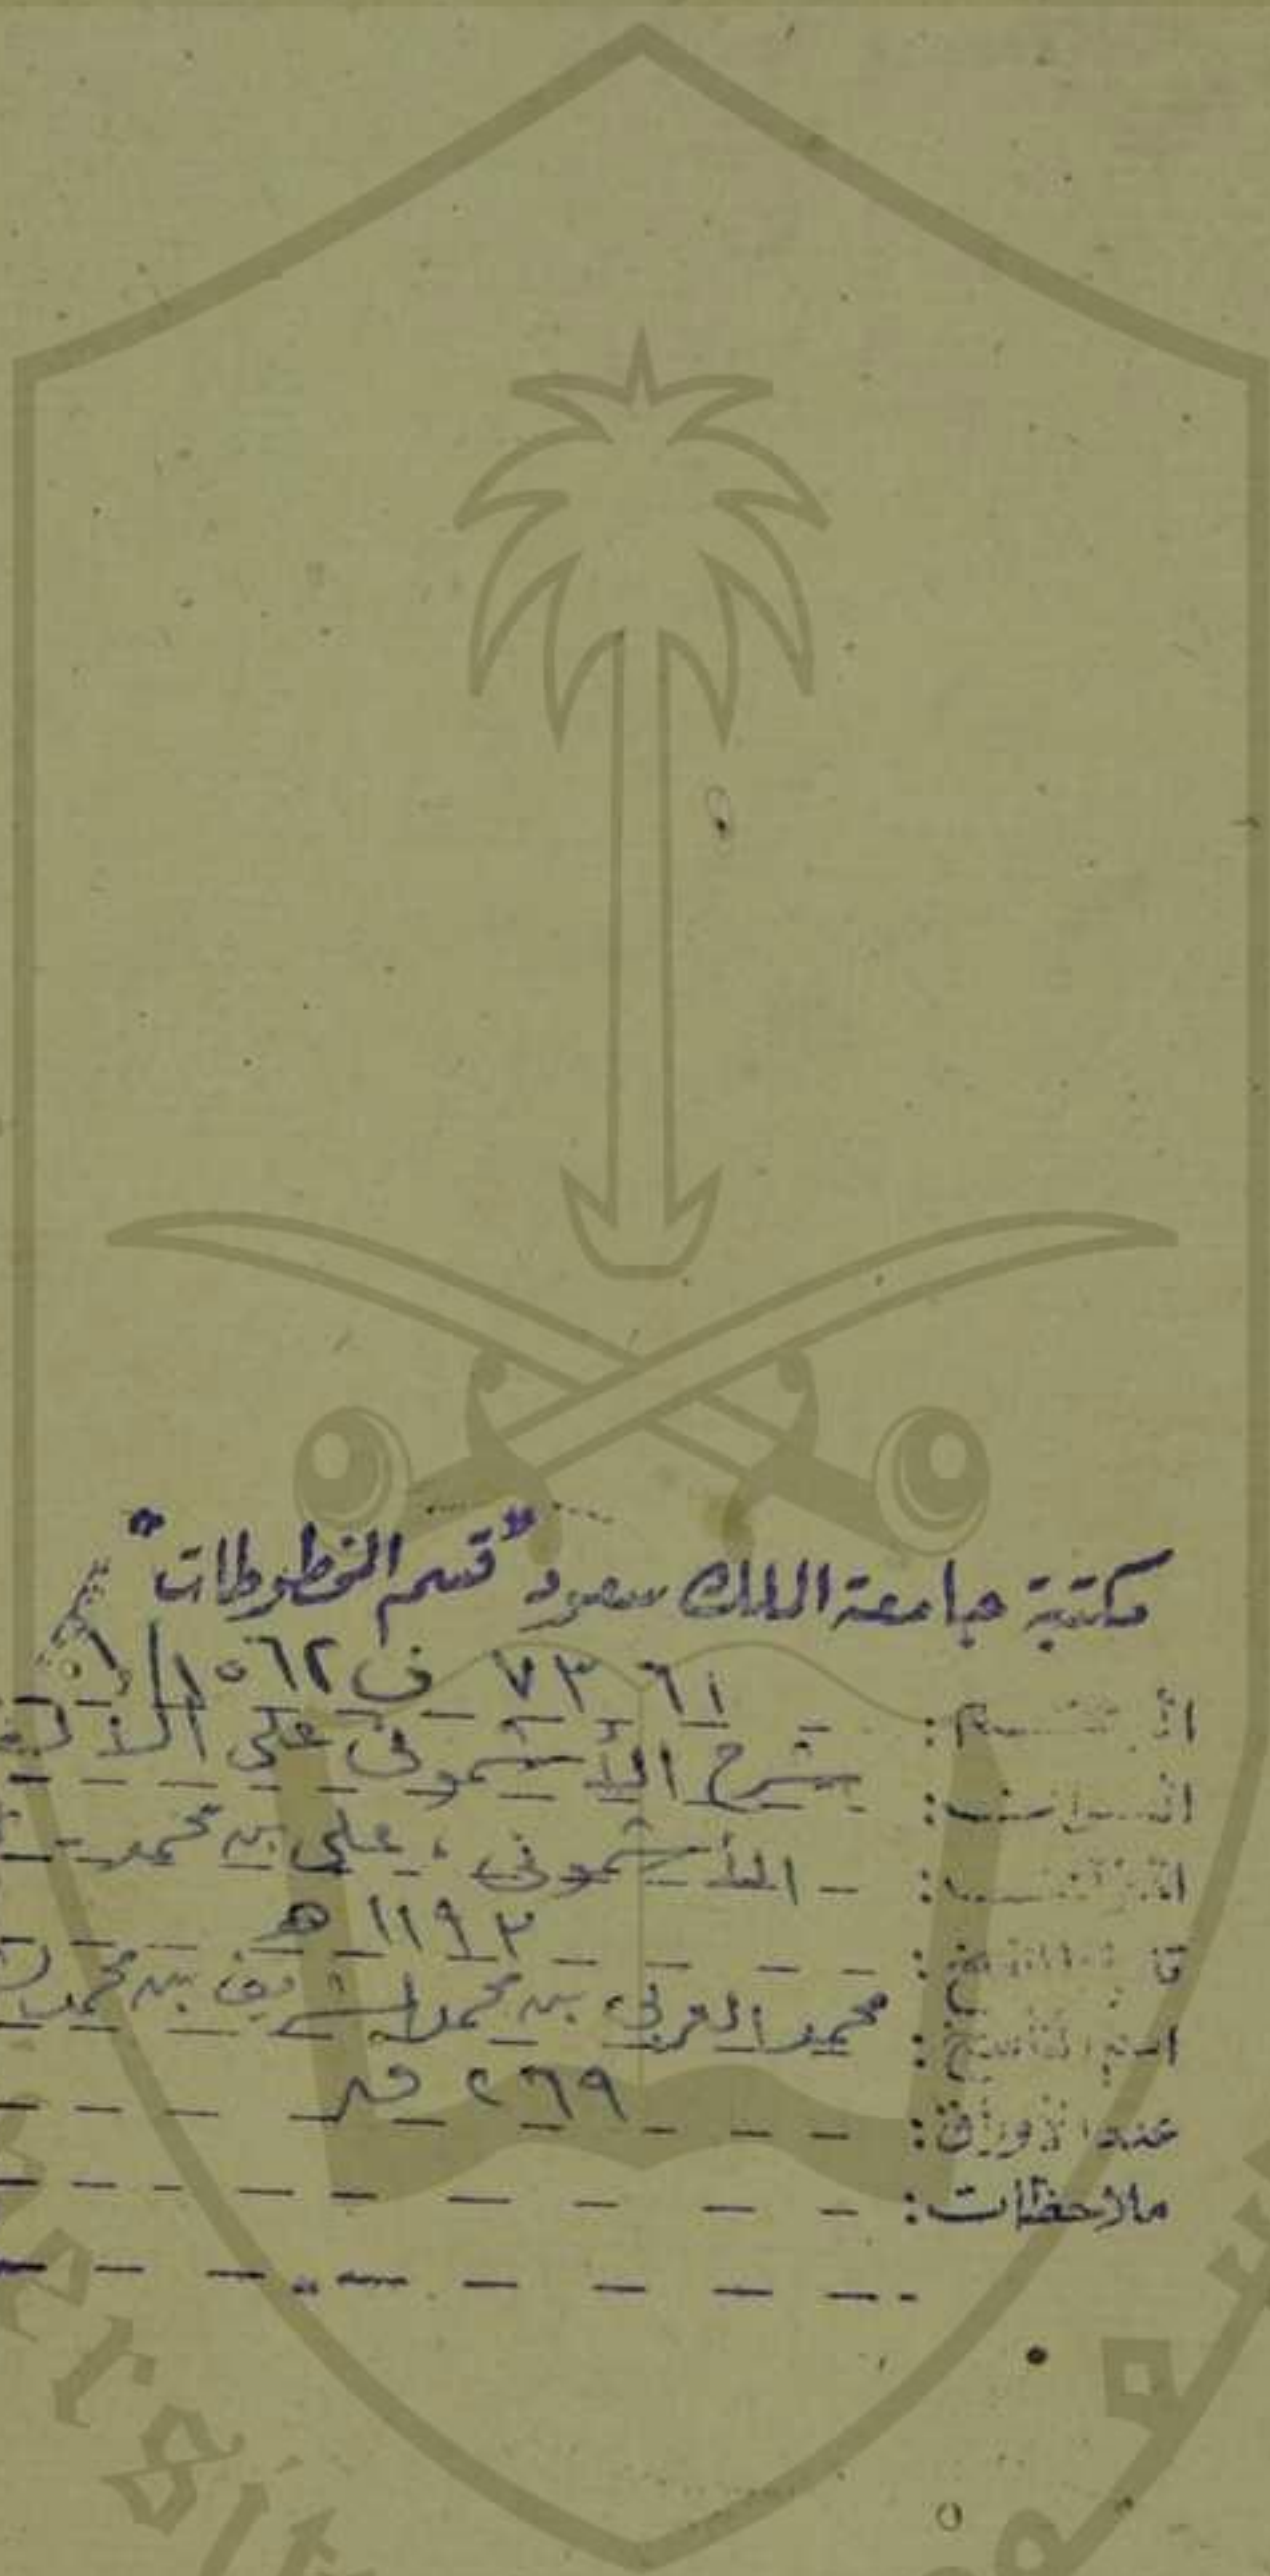 مكتبة جامعة الملك سعود "قسم المخطوطات"
الرقـــم: ٧٣٦١ ف ١٥٦٢ / ١
العنـــوان: شرح الأشموني على الألف
المؤلـــف: الأشموني ، علي بن محمد
تاريخ النسخ: ١١٩٣ هـ
اسم الناسخ: محمد العربي بن محمد الشريف بن محمد
عدد الأوراق: ٢٦٩ ور
ملاحظات: